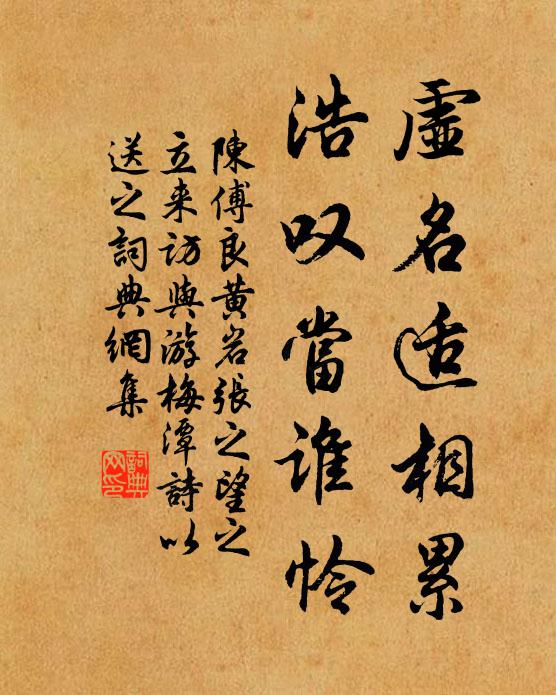 虛名适相累
浩叹當誰怜
陳傅良黄岩張之望之
立来访與游梅潭詩以
送之詞典網集
詞典
网印